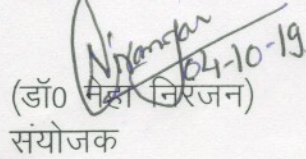 Niranjan
04-10-19
(डॉ0 नेहा निरंजन)
संयोजक